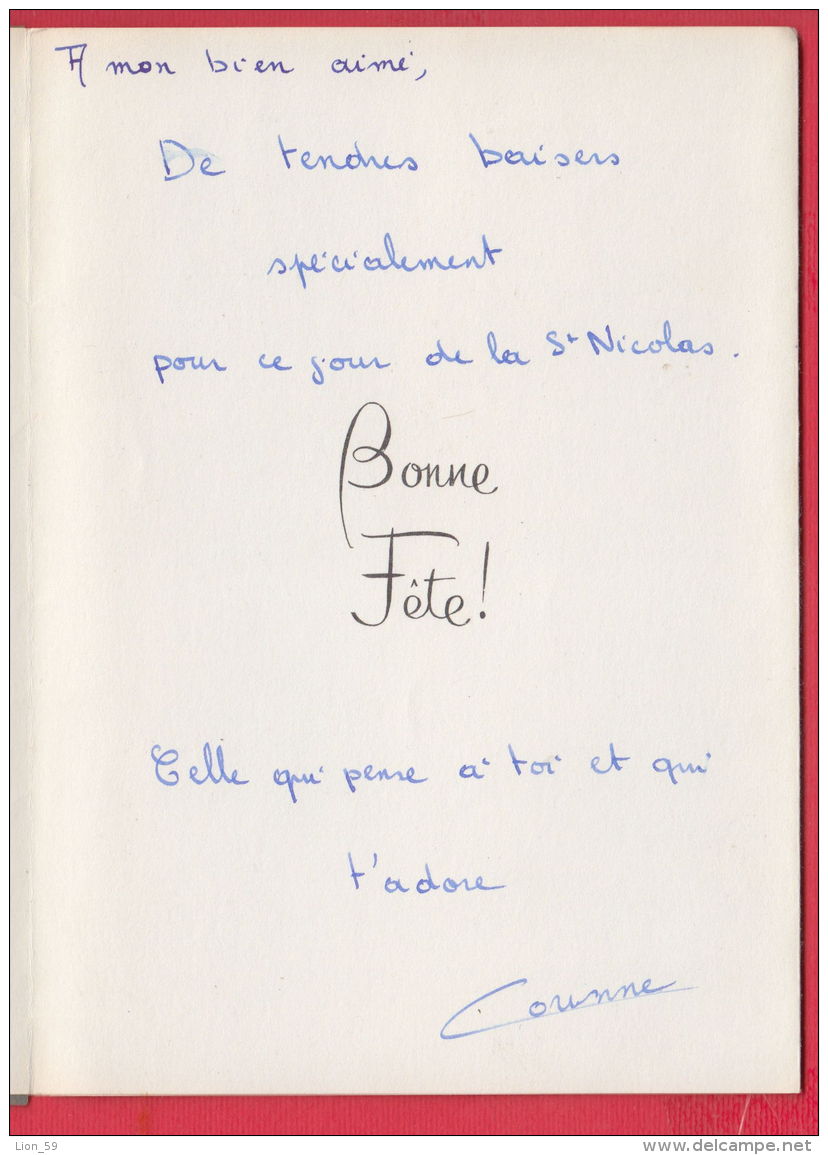 A mon bien aimé,
De tendres baisers
spécialement
pour ce jour de la St Nicolas.
Bonne
Fête!
Celle qui pense à toi et qui
t'adore
Corinne
Lion_59
www.delcampe.net